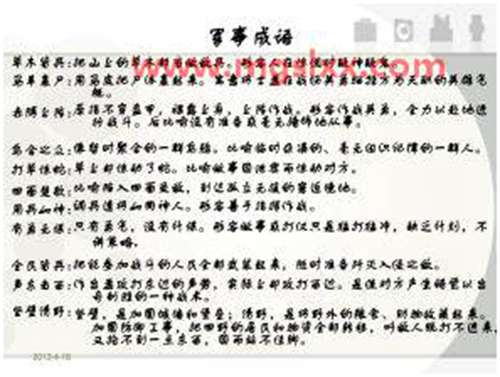 军事成语
草木皆兵：把山上的草木都当做敌兵。形容人在惊慌时疑神疑鬼。
www.mgslxx.com
马革裹尸：用马皮把尸体裹起来。
赤膊上阵：原指不穿盔甲，裸露上身，上阵作战。形容作战英勇，全力以赴地进
行战斗。后比喻没有准备或毫无掩饰地从事。
乌合之众：像暂时聚合的一群乌鸦。比喻临时杂凑的、毫无组织纪律的一群人。
打草惊蛇：草上部惊动了蛇。比喻做事因泄密而惊动对方。
四面楚歌：比喻陷入四面受敌，到达孤立无援的窘迫境地。
用兵如神：调兵遣将如同神人。形容善于指挥作战。
有勇无谋：只有勇气，没有计谋。形容做事或打仗只是猛打猛冲，缺乏计划，不
讲策略。
全民皆兵：把能参加战斗的人民全部武装起来，随时准备歼灭入侵之敌。
声东击西：作出虚攻打东边的声势，实际上却攻打西边。是使对方产生错觉以出
奇制胜的一种战术。
坚壁清野：坚壁，是加固城墙和堡垒；清野，是将野外的粮食、财物收藏起来。
加固防御工事，把四野的居民和物资全部转移，叫敌人既打不进来，
又抢不到一点东西，因而站不住脚。